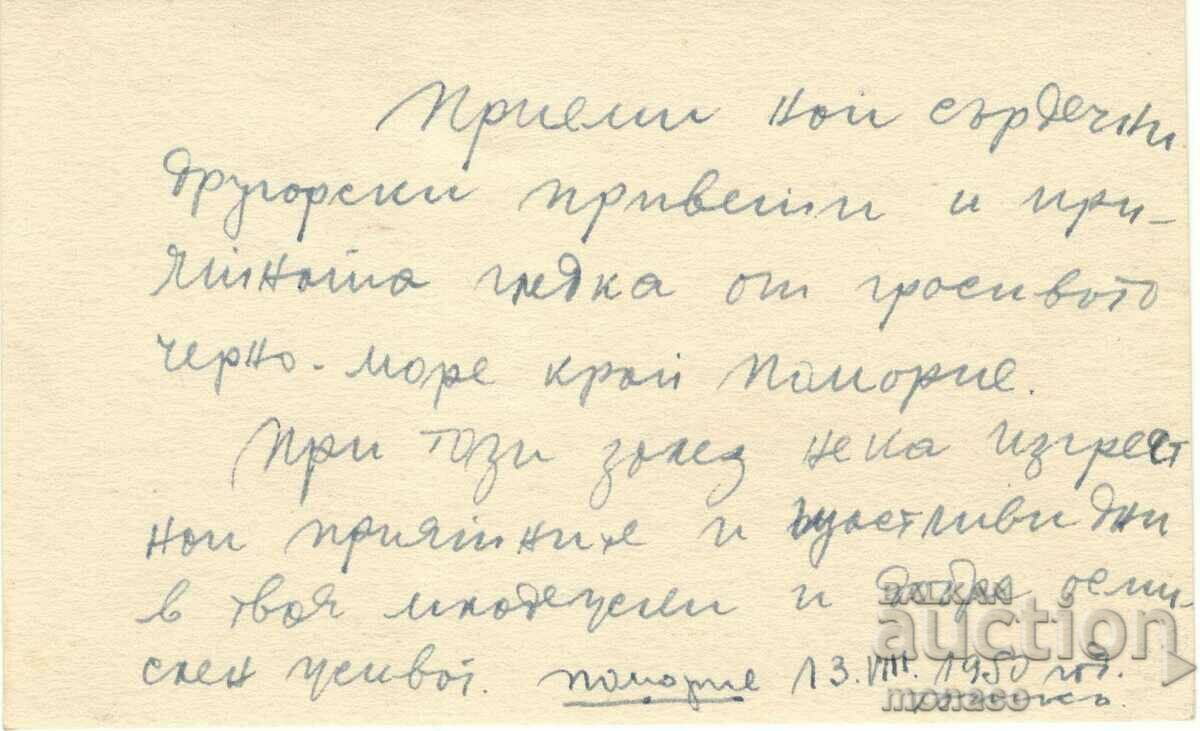 Приеми най сърдечни
другарски привети и при-
ятната гледка от красивото
черно-море край Поморие.
При този залез нека изгреят
най приятните и щастливи дни
в твоя младежки и добре осми-
слен живот. Поморие 13.VIII.1950 год.
BALKAN
auction
монасо